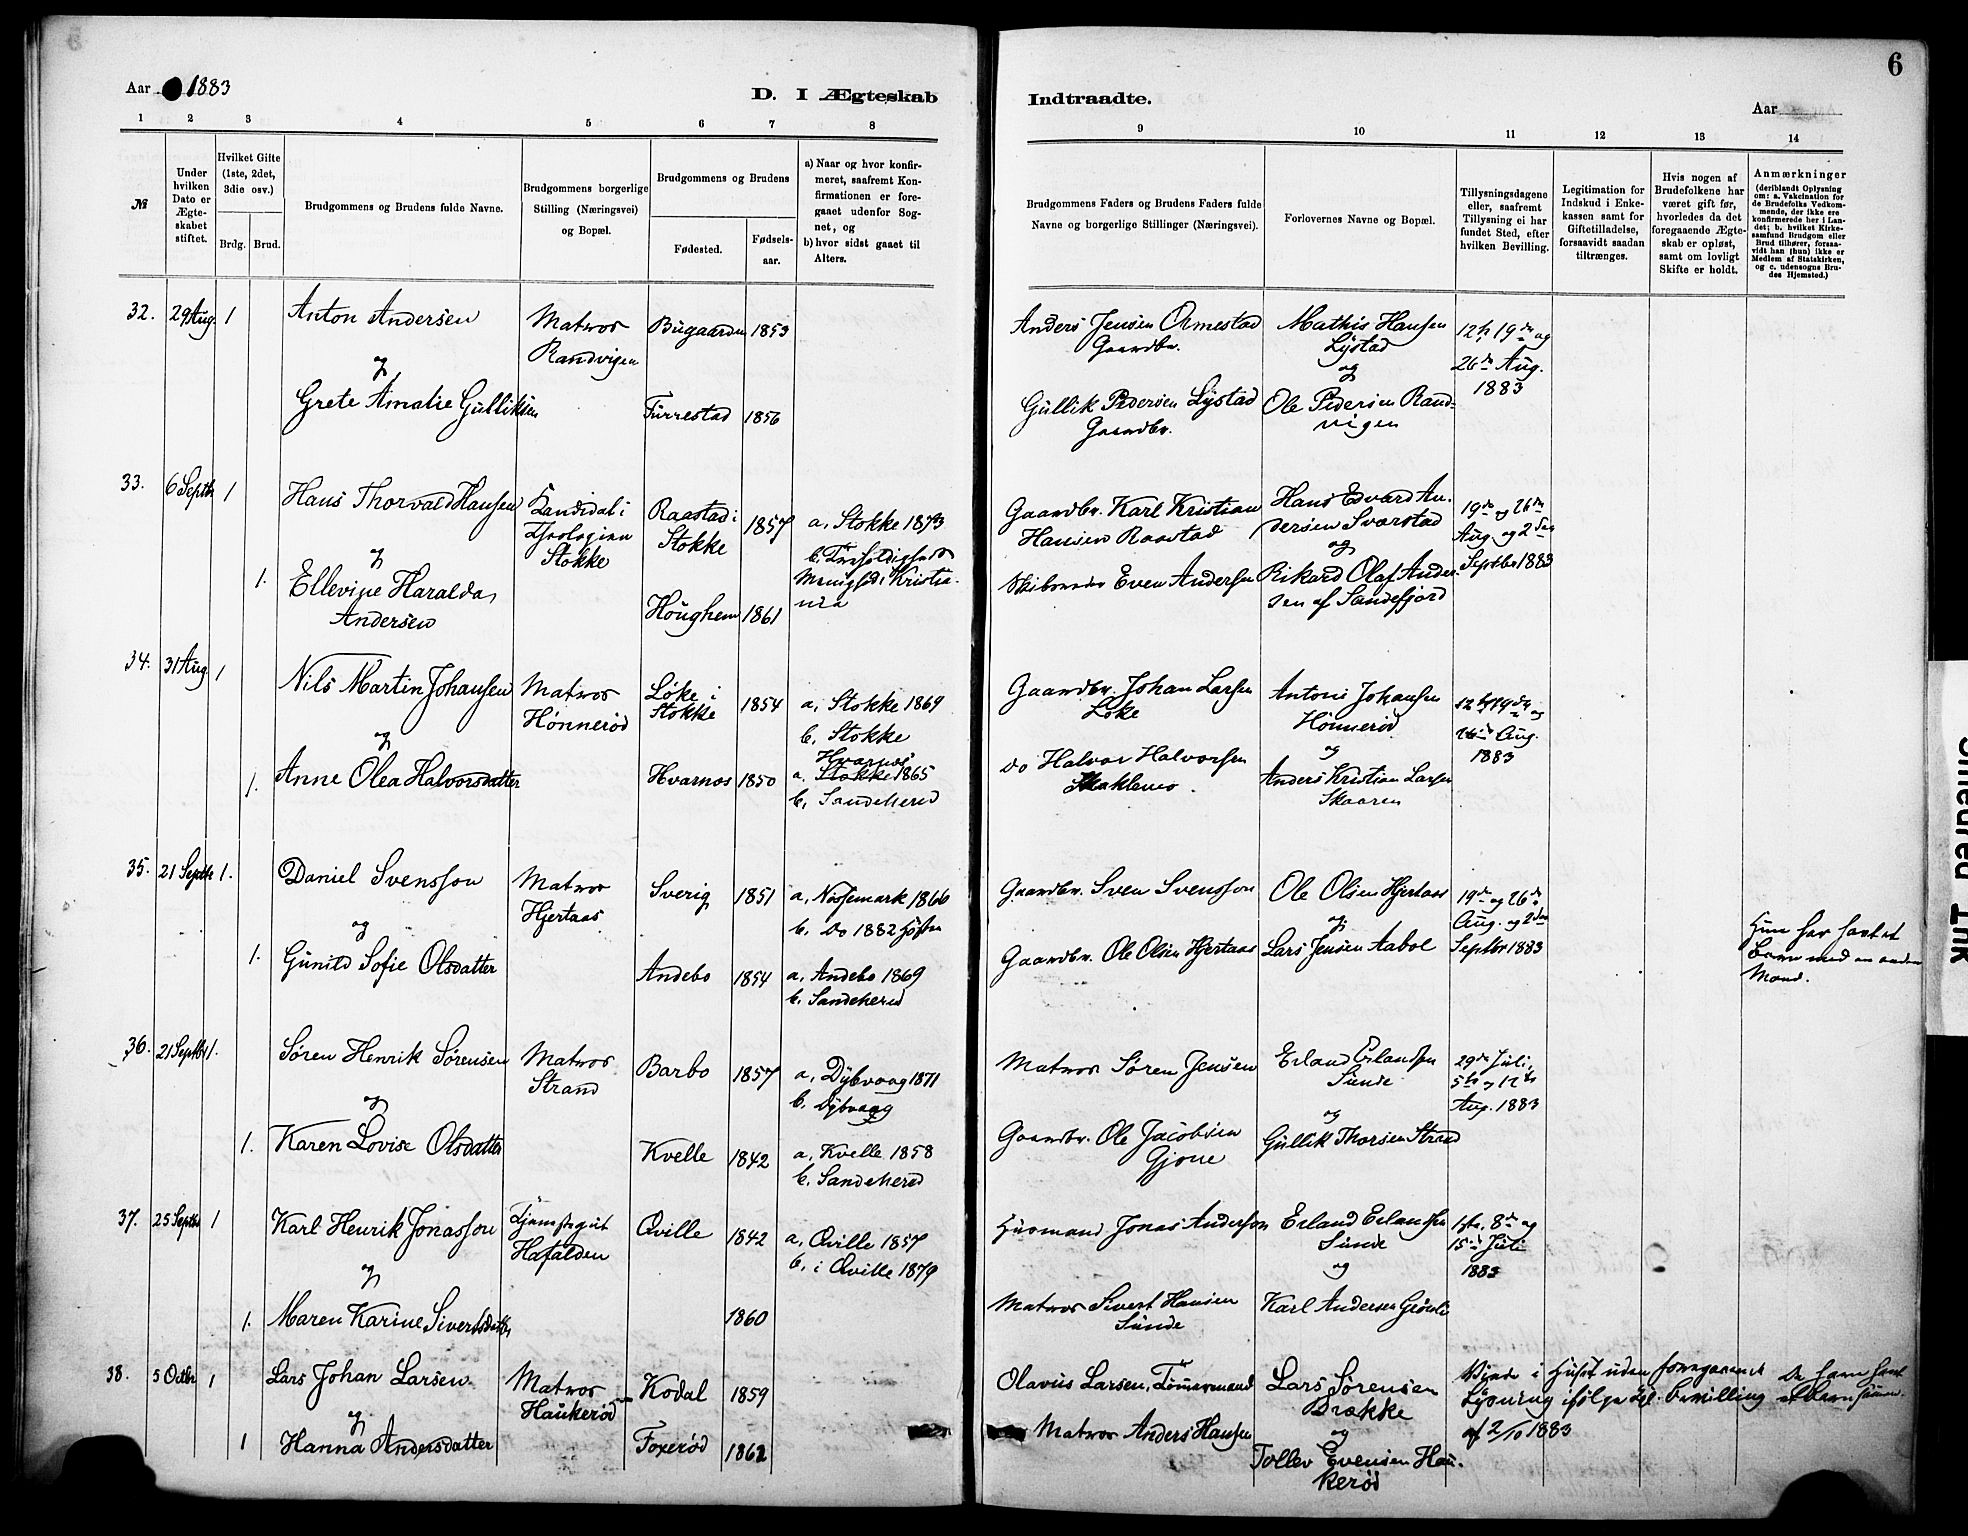 Aar 1883
D. I Ægteskab
1 2 3 4 5 6 7 8
№
Under hvilken Dato er Ægteskabet stiftet.
Hvilket Gifte (1ste, 2det, 3die osv.)
Brdg. Brud.
Brudgommens og Brudens fulde Navne.
Brudgommens borgerlige Stilling (Næringsvei) og Bopæl.
Brudgommens og Brudens
Fødested.
Fødselsaar.
a) Naar og hvor konfirmeret, saafremt Konfirmationen er foregaaet udenfor Sognet, og
b) hvor sidst gaaet til Alters.
32. 29 Aug. 1
Anton Andersen
Matros
Randvigen
Bugaarden 1853
og
Grete Amalie Gulliksen
Furrestad 1856
33. 6 Septbr 1
Hans Thorvald Hansen
Kandidat i
Theologien
Stokke
Raastad i
Stokke
1857
a, Stokke 1873
b. Trefoldigheds
Menighed i Kristia-
nia
og
1. Ellevine Haralda
Andersen
Houghem 1861
34. 31 Aug 1
Nils Martin Johansen
Matros
Hønnerød
Løke i
Stokke
1854
a, Stokke 1869
b. Stokke
og
1. Anne Olea Halvorsdatter
Hvarnes 1850
Hvarnes
a, Stokke 1865
b, Sandeherred
35. 21 Septbr 1.
Daniel Svensson
Matros
Hjertaas
Sverig 1851
a, Nössemark 1866
b. Do 1882 Høsten
og
1. Gunild Sofie Olsdatter
Andebo 1854
a, Andebo 1869
b. Sandeherred
36. 21 Septbr 1.
Søren Henrik Sørensen
Matros
Strand
Barbo 1857
a, Dybvaag 1871
b. Dybvaag
og
1. Karen Lovise Olsdatter
Kvelle 1842
a, Kvelle 1858
b. Sandeherred
37. 25 Septbr 1
Karl Henrik Jonasson
Tjenstegut
Hafalden
Qville 1842
a. Qville 1857
b. i Qville 1879
og
1. Maren Karine Sivertsdatter
1860
38. 5 Octbr 1
Lars Johan Larsen
Matros
Haukerød
Kodal 1859
og
1 Hanna Andersdatter
Foxerød 1862
6
Indtraadte.
Aar
9 10 11 12 13 14
Brudgommens Faders og Brudens Faders fulde Navne og borgerlige Stillinger (Næringsvei).
Forlovernes Navne og Bopæl.
Tillysningsdagene eller, saafremt Tillysning ei har fundet Sted, efter hvilken Bevilling.
Legitimation for Indskud i Enkekassen samt for Giftetilladelse, forsaavidt saadan tiltrænges.
Hvis nogen af Brudefolkene har været gift før, hvorledes da det foregaaende Ægteskab er opløst, samt om lovligt Skifte er holdt.
Anmærkninger
(deriblandt Oplysning om: a. Vakcination for de Brudefolks Vedkommende, der ikke ere konfirmerede her i Landet; b. hvilket Kirkesamfund Brudgom eller Brud tilhører, forsaavidt han (hun) ikke er Medlem af Statskirken, og c. udensogns Brudes Hjemsted.)
Anders Jensen Ormestad
Gaardbr.
Mathis Hansen
Lystad
og
12te 19de og
26de Aug.
1883
Gullik Pedersen Lystad
Gaardbr.
Ole Pedersen Rand-
vigen
Gaardbr. Karl Kristian
Hansen Raastad
Hans Edvard An-
dersen Svarstad
og
19de og 26de
Aug. og 2den
Septbr 1883
Skibsreder Even Andersen
Rikard Olaf Ander-
sen af Sandefjord
Gaardbr. Johan Larsen
Løke
Antoni Johansen
Hønnerød
og
12te 19de og
26de Aug.
1883
do Halvor Halvorsen
Anders Kristian Larsen
Skaaren
Gaardbr. Sven Svensson
Ole Olsen Hjertaas
og
19de og 26de
Aug. og 2den
Septbr 1883
Gaardbr. Ole Olsen Hjertaas
Lars Jensen Aabol
Hun har havt et
Barn med en anden
Mand.
Matros Søren Jensen
Erland Erlandsen
Sunde
og
29de Juli,
5te og 12te
Aug. 1883
Gaardbr. Ole Jacobsen
Gjone
Gullik Thorsen Strand
Husmand Jonas Anderson
Erland Erlandsen
Sunde
og
1ste, 8de og
15de Juli
1883
Matros Sivert Hansen
Sunde
Karl Andersen Grønli
Olavus Larsen, Tømmermand
Lars Sørensen
Brække
og
Viede i Huset uden foregaaende
Lysning ifølge Kgl. bevilling
af 2/10 1883
De have havt
et barn sammen.
Matros Anders Hansen
Tollev Evensen Hau-
kerød